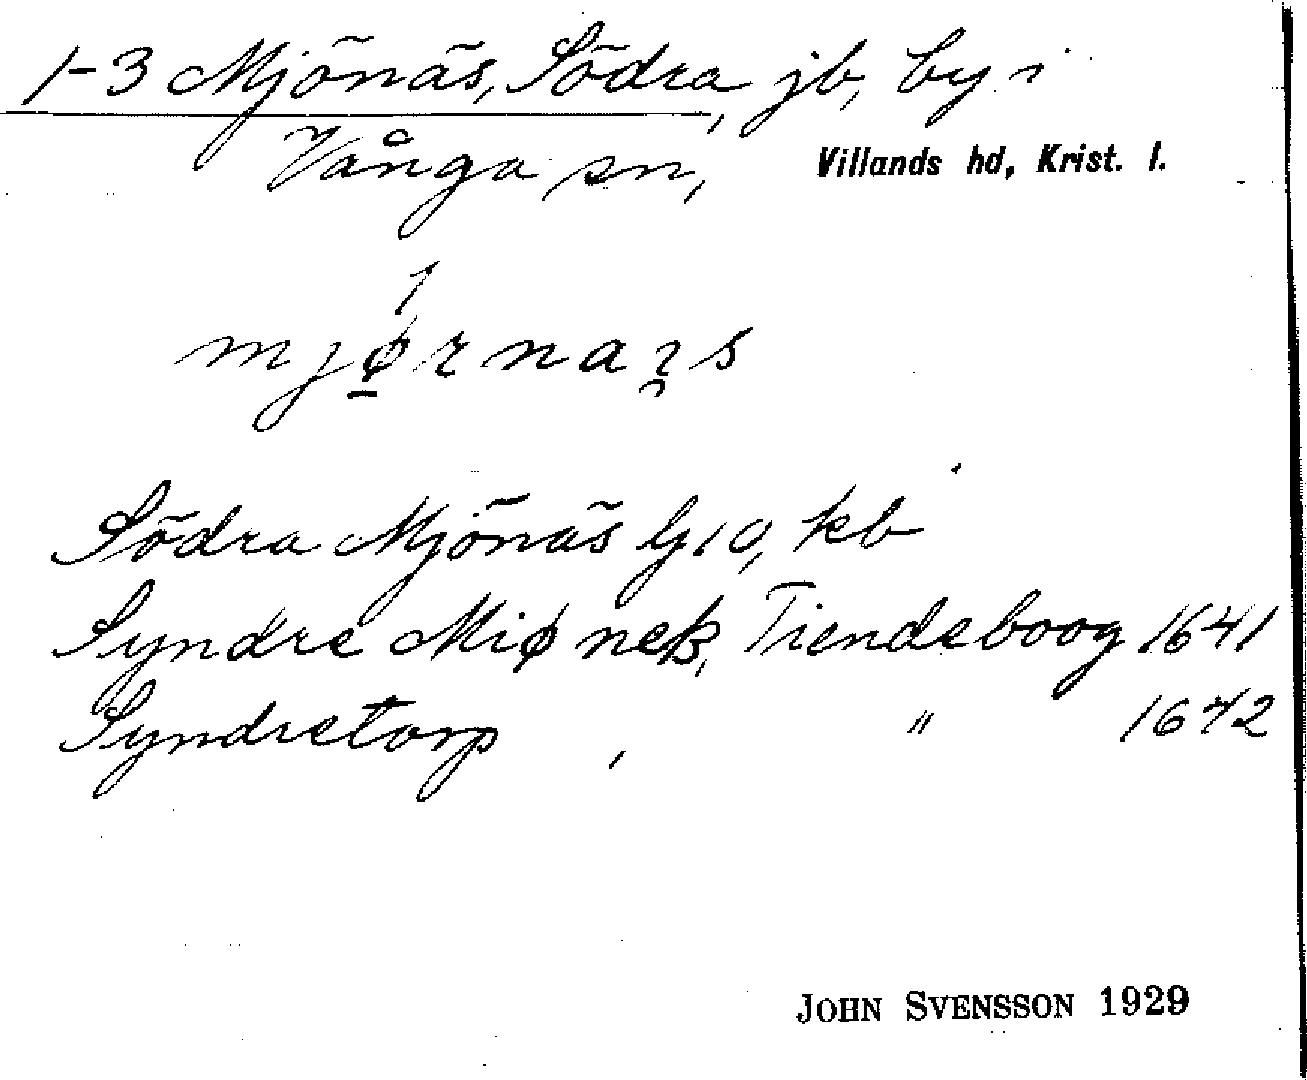 1-3 Mjönäs, Södra, jb, by i
Vånga sn, Villands hd, Krist. l.
Södra Mjönäs G10, kb
Syndre Miø nek, Tiendeboog 1641
Syndretorp, " 1642
JOHN SVENSSON 1929